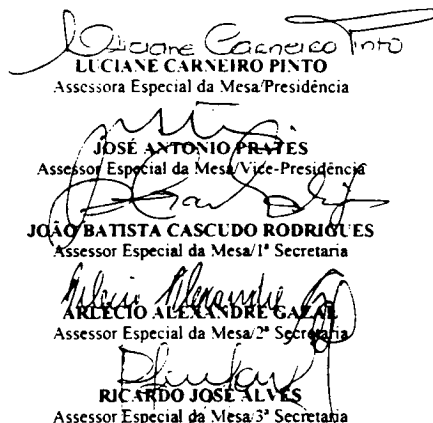 Luciane Carneiro Pinto
LUCIANE CARNEIRO PINTO
Assessora Especial da Mesa/Presidência
JOSÉ ANTONIO PRATES
Assessor Especial da Mesa/Vice-Presidência
JOÃO BATISTA CASCUDO RODRIGUES
Assessor Especial da Mesa/1ª Secretaria
Arlecio Alexandre
ARLÉCIO ALEXANDRE GAZAL
Assessor Especial da Mesa/2ª Secretaria
RICARDO JOSÉ ALVES
Assessor Especial da Mesa/3ª Secretaria